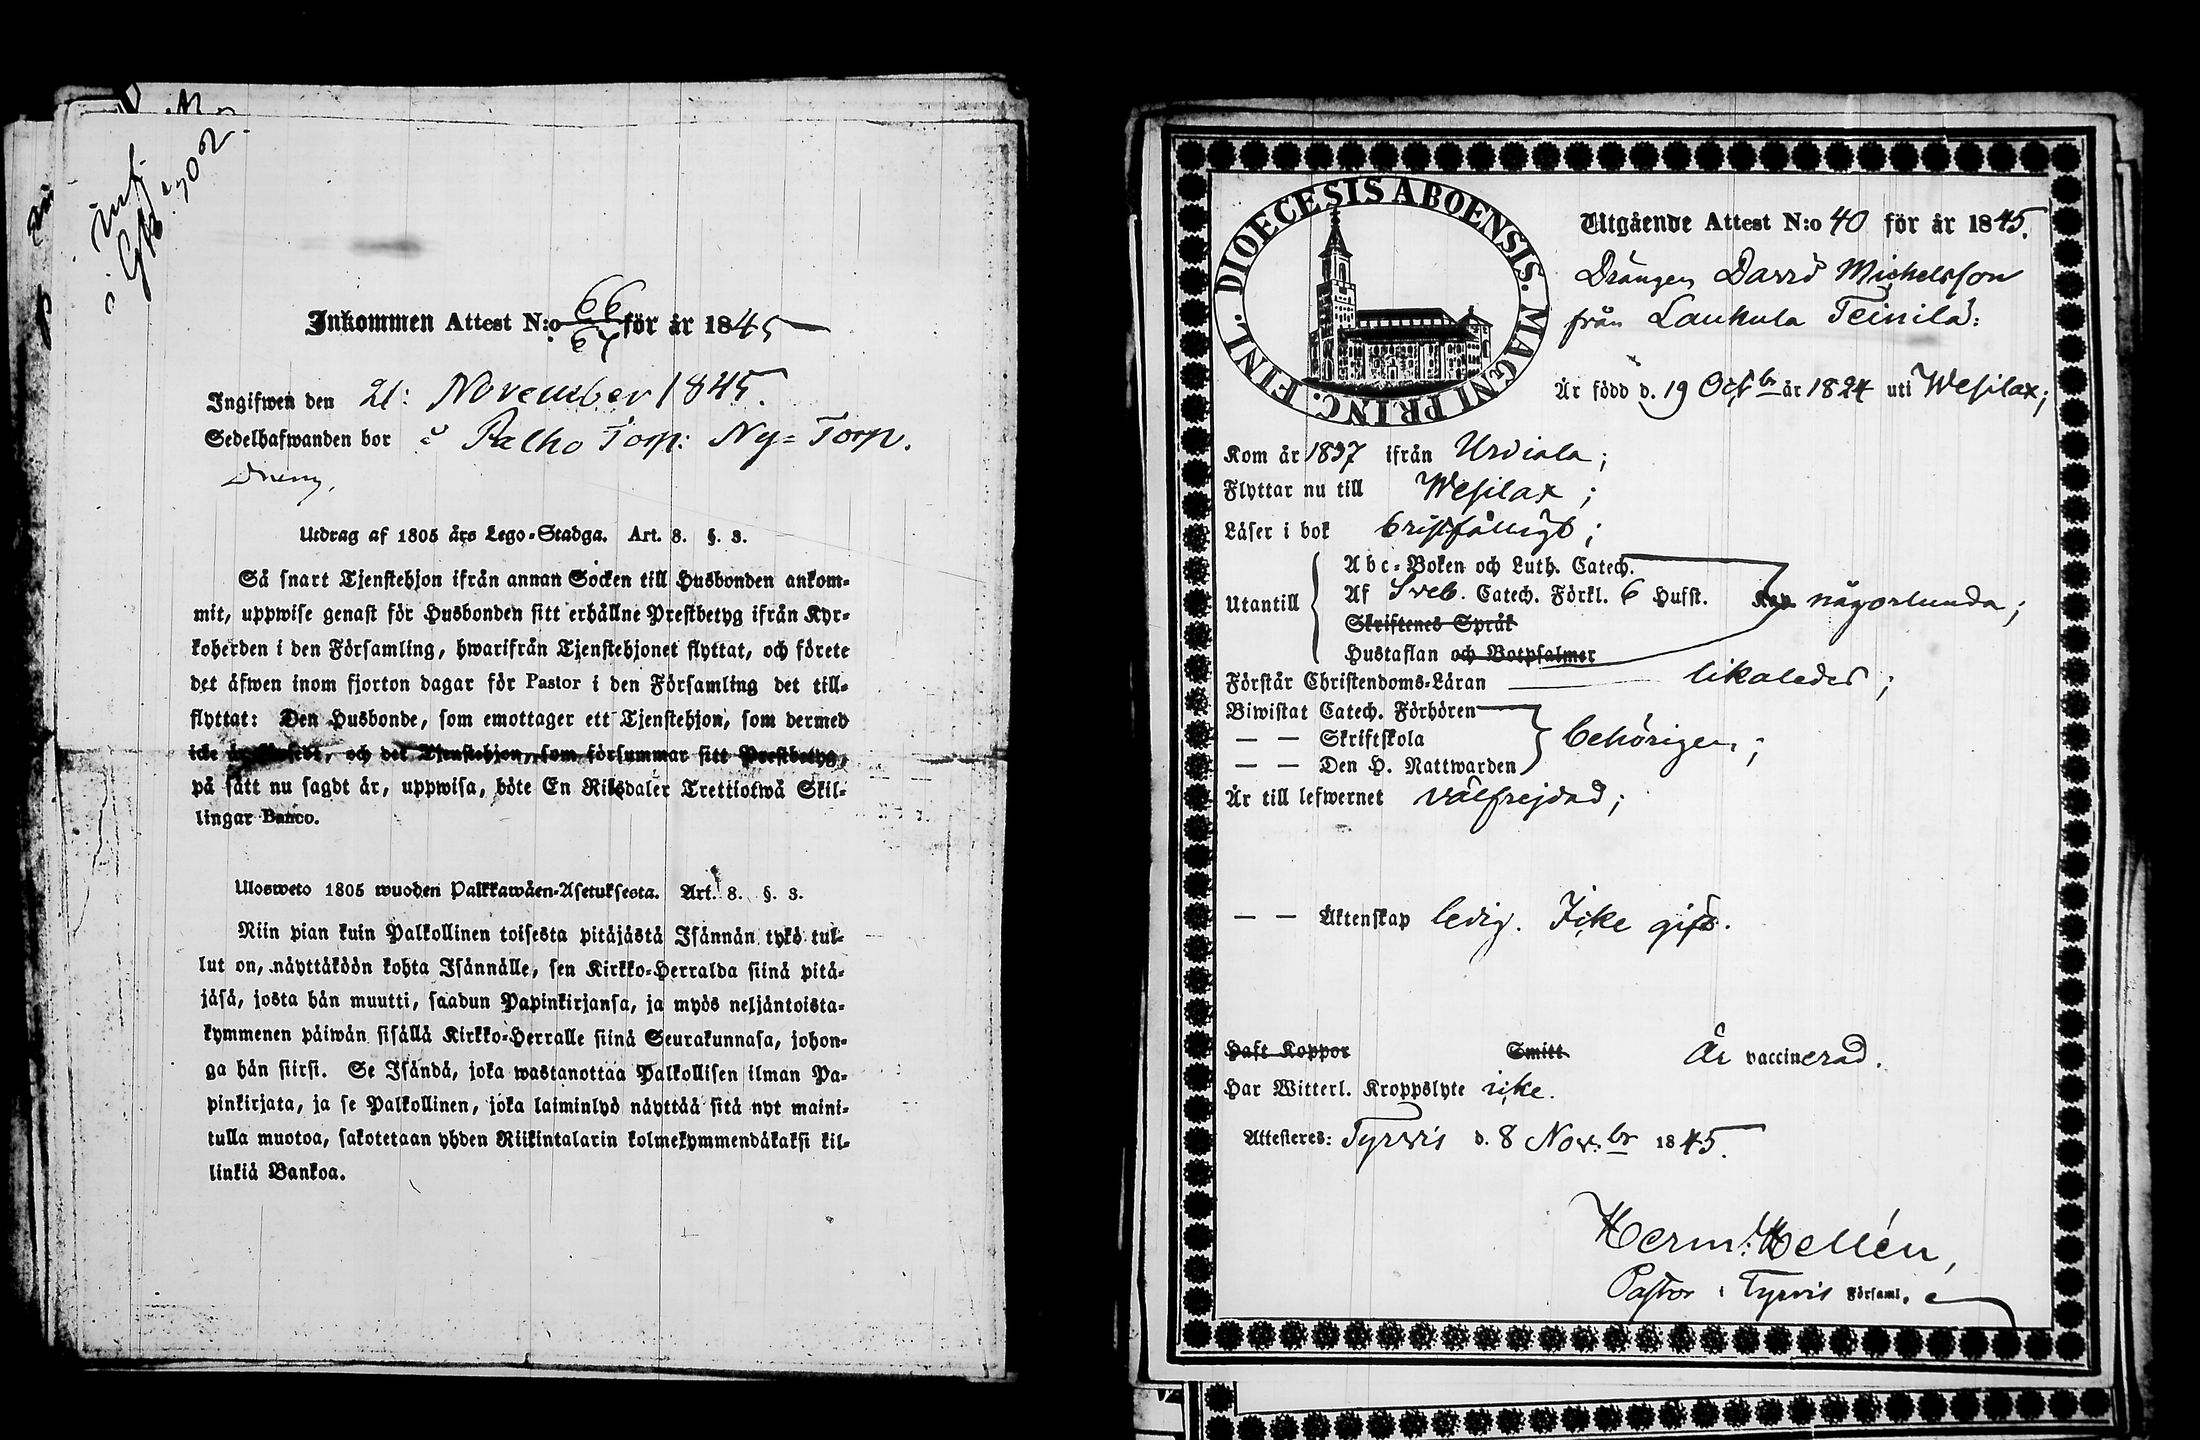 Inf.
Gfk. 702.
Inkommen Attest N:o 66 för år 1845
67
Ingifwen den 21: November 1845.
Sedelhafwanden bor å Palho Torp: Ny=Torp.
Dreng,
Utdrag af 1805 års Lego-Stadga. Art. 8. §. 3.
Så snart Tjenstehjon ifrån annan Socken till Husbonden ankom-
mit, uppwise genast för Husbonden sitt erhållne Prestbetyg ifrån Kyr-
koherden i den Församling, hwarifrån Tjenstehjonet flyttat, och förete
det äfwen inom fjorton dagar för Pastor i den Församling det till-
flyttat: Den Husbonde, som emottager ett Tjenstehjon, som dermed
icke är försedt, och det Tjenstehjon, som försummar sitt Prestbetyg,
på sätt nu sagdt är, uppwisa, böte En Riksdaler Trettiotwå Skil-
lingar Banco.
Ulosweto 1805 wuoden Palkkawäen-Asetuksesta. Art. 8. §. 3.
Niin pian kuin Palkollinen toisesta pitäjästä Isännän tykö tul-
lut on, näyttäköön kohta Isännälle, sen Kirkko-Herralda siinä pitä-
jäsä, josta hän muutti, saadun Papinkirjansa, ja myös neljäntoista-
kymmenen päiwän sisällä Kirkko-Herralle siinä Seurakunnasa, johon-
ga hän siirsi. Se Isändä, joka wastanottaa Palkollisen ilman Pa-
pinkirjata, ja se Palkollinen, joka laiminlyö näyttää sitä nyt maini-
tulla muotoa, sakotetaan yhden Riikintalarin kolmekymmendäkaksi kil-
linkiä Bankoa.
DIOECESIS ABOENSIS. MAGNI PRINC. FINL.
Utgående Attest N:o 40 för år 1845.
Drängen David Michelsson
från Laukula Teinilä:
Är född d. 19 Octbr år 1824 uti Wesilax;
Kom år 1837 ifrån Urdiala;
Flyttar nu till Wesilax;
Läser i bok bristfälligt;
Utantill
Abc-Boken och Luth. Catech.
Af Sveb. Catech. Förkl. 6 Hufst. Kap. någorlunda;
Skriftenes Språk
Hustaflan och Botpsalmer
Förstår Christendoms-Läran likaledes;
Biwistat Catech. Förhören
— — Skriftskola behörigen;
— — Den H. Nattwarden
Är till lefwernet välfrejdad;
— — Äktenskap ledig. Icke gift.
Haft Koppor Smitt Är vaccinerad.
Har Witterl. Kroppslyte icke.
Attesteres: Tyrvis d. 8 Nov:br 1845.
Herm: Hellén,
Pastor i Tyrvis Församl.